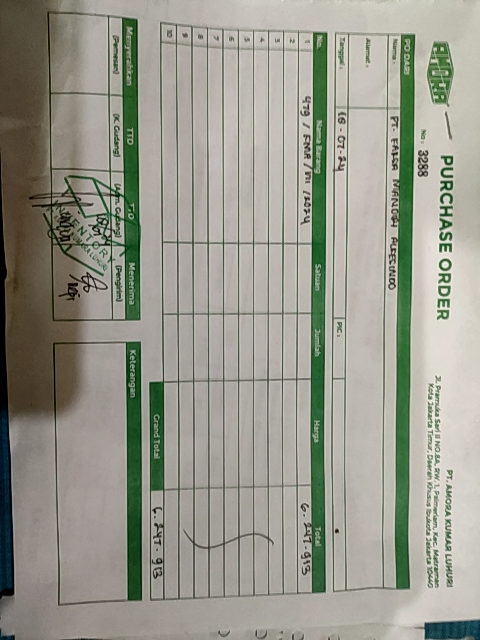 AMORA
PURCHASE ORDER
No : 3288
PT. AMORA KUMAR LUHURI
Jl. Pramuka Sari II NO.8A, RW. 1, Palmeriam, Kec. Matraman
Kota Jakarta Timur, Daerah Khusus Ibukota Jakarta 10440
PO DARI
Nama : PT. FAJAR MANDIRI
Alamat :
Tanggal : 18 - 07 - 24
PIC :
No. Nama Barang Satuan Jumlah Harga Total
1 479 / FMA / VII / 2024 6.247.913
2
3
4
5
6
7
8
9
10
Grand Total 6.247.913
Menyerahkan TTD TTD Menerima
(Pemesan) (K. Gudang) (Adm. Gudang) (Pengirim)
Keterangan